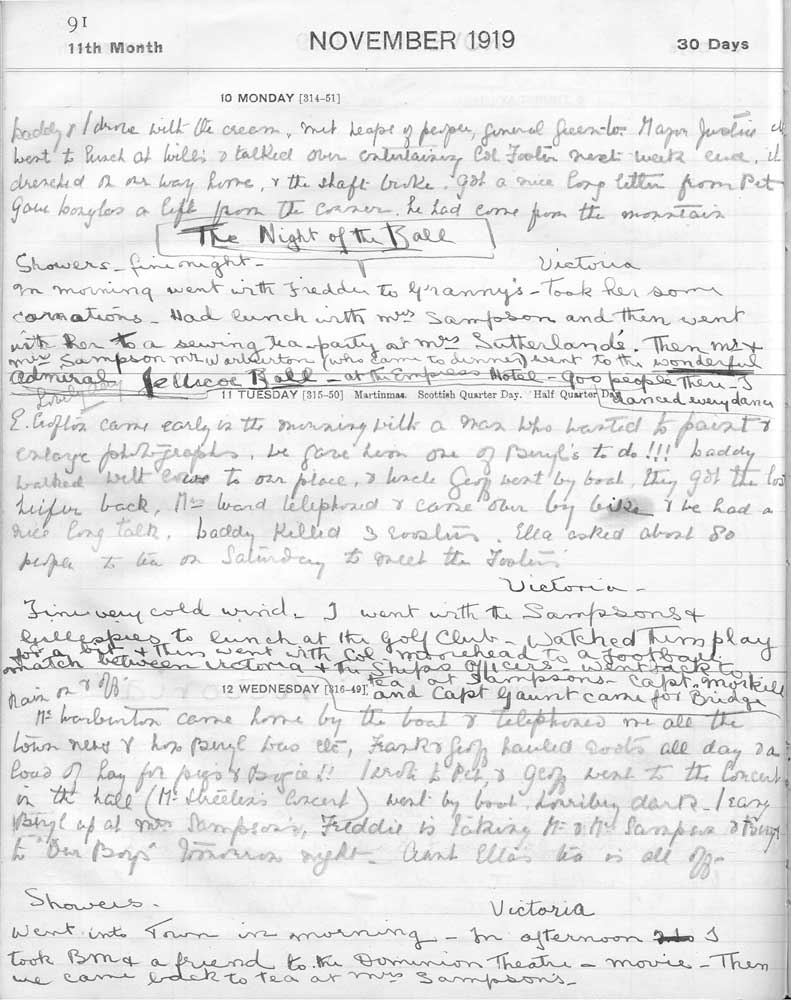 91
11th Month
NOVEMBER 1919
30 Days
10 MONDAY [314-51]
Daddy & I drove with the cream, met heaps of people, General Green Mayor Justice
went to lunch at Will's & talked over entertaining Col Foster next week end,
drenched on our way home, & the shaft broke. Got a nice long letter from Pet
Gave a lift from the corner. he had come from the mountain
The Night of the Ball
Showers - fine night - Victoria
In morning went with Freddie to Granny's - Took her some
carnations - Had lunch with Mrs Sampson and then went
with her to a sewing tea-party at Mrs Sutherland's. Then Mr &
Mrs Sampson Mr Warburton (who came to dinner) went to the wonderful
Admiral Jellicoe Ball - at the Empress Hotel - 900 people there - I
danced every dance
11 TUESDAY [315-50] Martinmas. Scottish Quarter Day. Half Quarter Day
E. Crofton came early in the morning with a man who wanted to paint &
enlarge photographs, we gave him one of Beryl's to do!!! Daddy
walked with cows to our place, & Uncle Geof went by boat, they got the
heifer back, Mrs Ward telephoned & came over by bike & we had a
nice long talk. Daddy killed 3 roosters. Ella asked about 80
people to tea on Saturday to meet the Fosters
Victoria -
Fine very cold wind. I went with the Sampsons &
Gillespies to lunch at the Golf Club - Watched them play
for a bit & then went with Col Moorehead to a football
match between Victoria & the Ships Officers - went back to
tea at Sampsons - Capt. Morkill
and Capt Gaunt came for Bridge
12 WEDNESDAY [316-49]
Rain on & off.
Mr Warburton came home by the boat & telephoned me all the
town news & how Beryl was etc, Frank & Geof hauled roots all day & a
load of hay for pigs & !! I wrote to Pet & Geof went to the Concert
in the hall (Mr Concert) went by boat. horribly dark. I rang
Beryl up at Mrs Sampson's, Freddie is taking Mr & Mrs Sampson & Beryl
to "Our Boys" tomorrow night. Aunt Ella's tea is all off.
Showers - Victoria
Went into Town in morning - In afternoon I
took BM & a friend to the Dominion Theatre - movie - Then
we came back to tea at Mrs Sampson's -